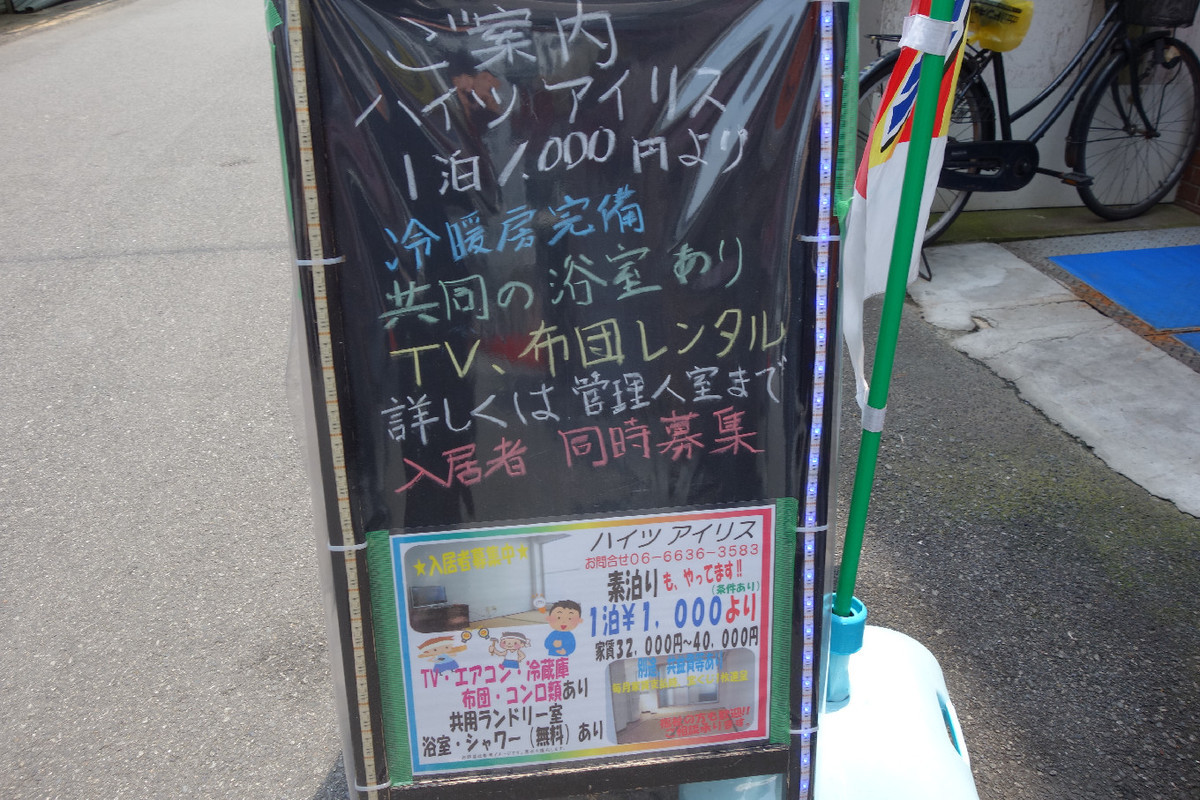 ご案内
ハイツ アイリス
1泊1,000円より
冷暖房完備
共同の浴室あり
TV、布団レンタル
詳しくは管理人室まで
入居者 同時募集
★入居者募集中★
ハイツ アイリス
お問合せ06-6636-3583
素泊りも、やってます!!
(条件あり)
1泊¥1,000より
家賃32,000円~40,000円
TV・エアコン・冷蔵庫
布団・コンロ類あり
共用ランドリー室
浴室・シャワー(無料)あり
別途 共益費等あり